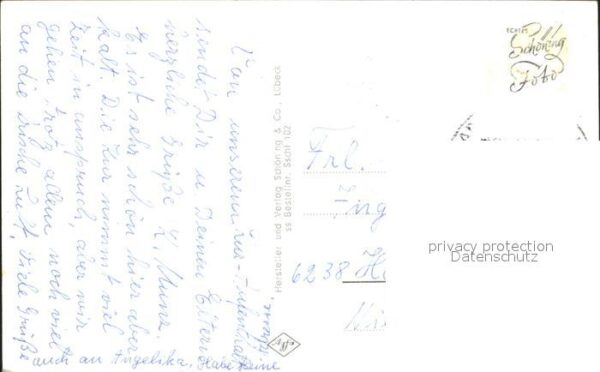 Von unserem Kur-Aufenthalt
sendet Dir u Deinen Eltern
herzliche Grüße L. Kunz.
Es ist sehr schön hier aber
kalt. Die Kur nimmt viel
Zeit in anspruch, aber wir
gehen trotz allem noch viel
an die frische Luft. Viele Grüße
auch an Angelika,
Hersteller und Verlag Schöning & Co., Lübeck
ss Bestellnr. SSchf 102
agfa
echtes
Schöning
Foto
Frl.
Ing
6238 H
privacy protection
Datenschutz